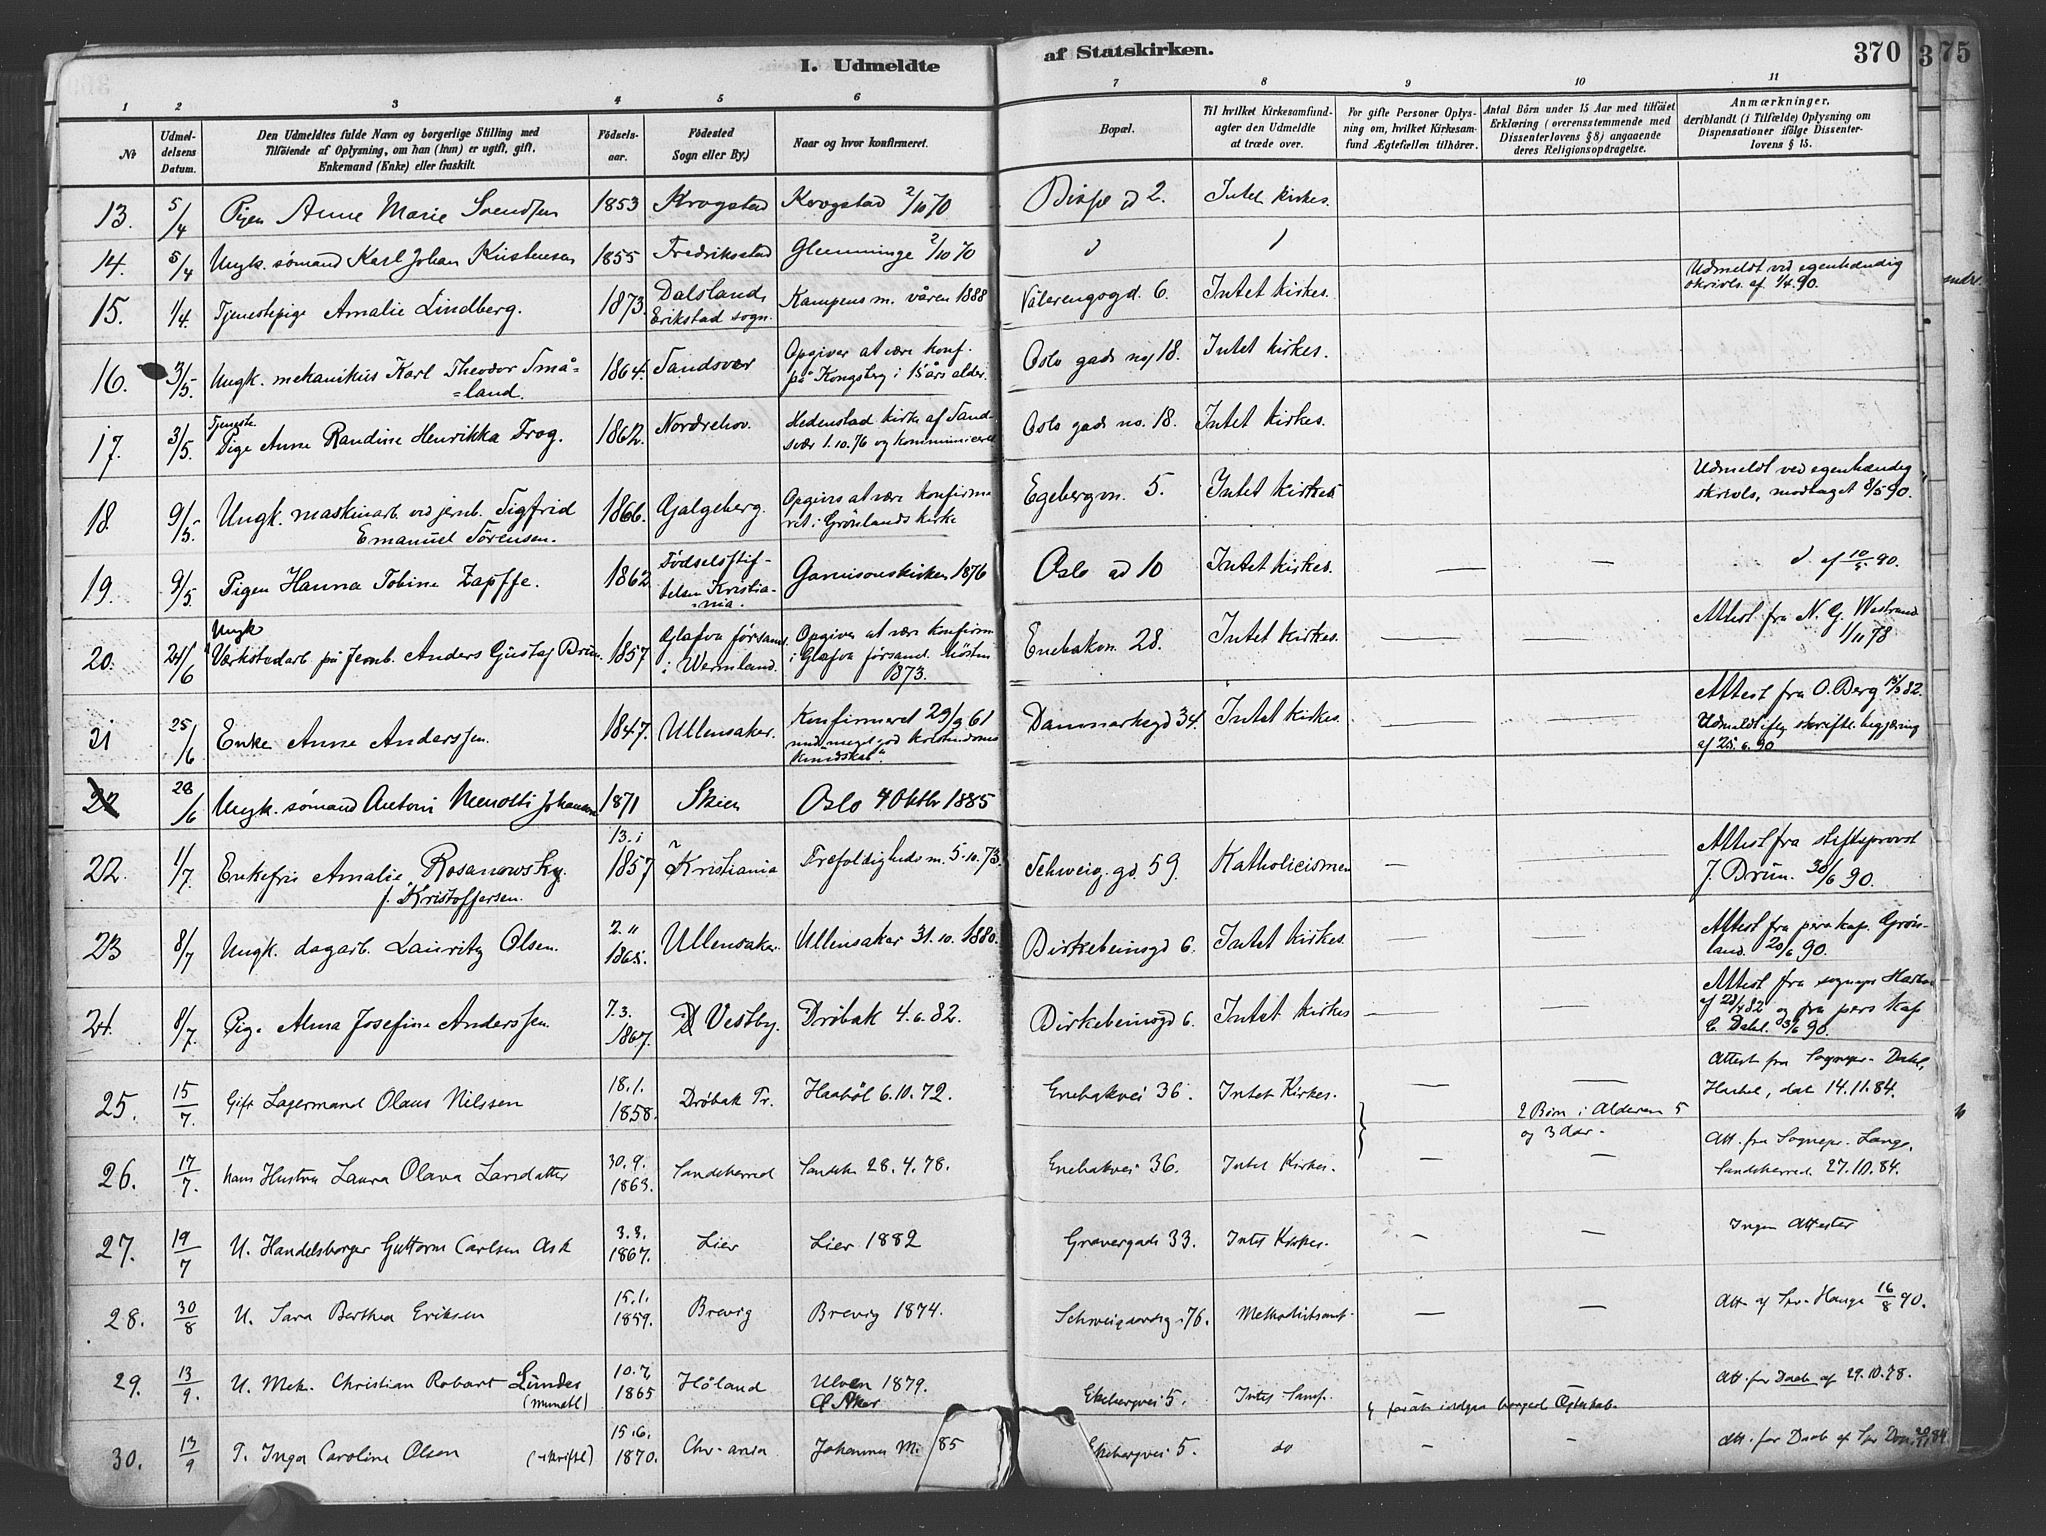 I. Udmeldte af Statskirken. 370 375
1 2 3 4 5 6 7 8 9 10 11
No
Udmeldelsens Datum.
Den Udmeldtes fulde Navn og borgerlige Stilling med
Tilföiende af Oplysning, om han (hun) er ugift, gift,
Enkemand (Enke) eller fraskilt.
Födselsaar.
Födested
Sogn eller By.)
Naar og hvor konfirmeret.
Bopæl.
Til hvilket Kirkesamfund
agter den Udmeldte
at træde over.
For gifte Personer Oplysning om, hvilket Kirkesamfund Ægtefællen tilhörer.
Antal Börn under 15 Aar med tilföiet
Erklæring (overensstemmende med
Dissenterlovens § 8) angaaende
deres Religionsopdragelse.
Anmærkninger,
deriblandt (i Tilfælde) Oplysning om
Dispensationer ifölge Dissenterlovens § 15.
13. 5/4 Pigen Anne Marie Svendsen 1853 Krogstad Krogstad 2/10 70 Bispegd 2. Intet kirkes.
14. 5/4 Ungk. sømand Karl Johan Kristensen 1855 Fredriksstad Glemminge 2/10 70
15. 1/4. Tjenestepige Amalie Lindberg. 1873. Dalsland, Erikstad sogn. Kampens m. våren 1888 Vålerengagd. 6. Intet kirkes. Udmeldt ved egenhændig skrivls. af 1/4 90.
16. 3/5. Ungk. mekanikus Karl Theodor Små=land. 1864. Sandsvær Opgiver at være konf. på Kongsberg i 15 års alder. Oslo gade no 18. Intet kirkes.
17. 3/5 Tjeneste Pige Anne Randine Henrikka Frog. 1862. Nordrehov. Hedenstad kirke af Sandsvær 1.10.76 og kommuniceret Oslo gade no. 18. Intet kirkes.
18. 9/5. Ungk. maskinarb. ved jernb. Sigfrid Emanuel Sörensen. 1866. Galgeberg. Opgives at være konfirmeret i Grönlands kirke Egebergvn. 5. Intet Kirkes Udmeldt ved egenhændig skrivls, modtaget 8/5 90.
19. 9/5. Pigen Hanna Tobine Zapffe. 1862 Fødselsstiftelsen Kristiania. Garnisonskirken 1876 Oslo gd 10 Intet kirkes. — — af 10/5 90.
20. 24/6 Ungk Værkstedarb på Jernb. Anders Gustaf Brun. 1857 Glafva församl. i Wermland. Opgiver at være konfirm. i Glafva församl. høsten 1873. Enebakvn. 28. Intet kirkes. — — Attest fra N. G. Westrand 1/11 78
21 25/6 Enke Anne Anderssen. 1847. Ullensaker. Konfirmeret 29/9 61 med "meget god kristendoms kundskab". Danmarksgd 34. Intet kirkes. — — Attest fra O. Berg 15/3 82. Udmeldt iflg skriftl. begjæring af 25.6.90
22 28/6 Ungk. sømand Antoni Menotti Johansen 1871 Skien Oslo 4 Oktbr 1885
22. 1/7. Enkefru Amalie Rosanowsky. f. Kristoffersen. 13. i 1857 Kristiania Trefoldigheds m. 5.10.73. Schweig. gd. 59. Katholicismen — Attest fra stiftsprovst J. Brun. 30/6 90.
23 8/7 Ungk. dagarb. Lauritz Olsen. 2. 11 1865. Ullensaker. Ullensaker 31.10.1880. Birkebeinsgd 6. Intet Kirkes. — — Attest fra pers kap. Grønland. 20/6 90.
24. 8/7. Pige Alma Josefine Anderssen. 7.3. 1867. Vestby. Drøbak 4.6.82. Birkebeinsgd 6. Intet kirkes — — Attest fra sognepr Harboe af 28/4 82 og fra pers kap C. Dahl. 3/6 90.
25. 15/7. Gift Lagermand Olaus Nilssen 18.1. 1858. Drøbak Tr. Haabøl 6.10.72. Enebakvei 36. Intet Kirkes. — — 2 Børn i Alderen 5 og 3 Aar. Attest fra Sognepr. Dahl, dat 14.11.84.
26. 17/7. hans Hustru Laura Olava Larsdatter 30.9. 1863. Sandeherred Sandeh. 28.4.78. Enebakvei 36. Intet Kirkes. — — Att. fra Sognepr. Lange, Sandeherred 27.10.84.
27. 19/7 U. Handelsborger Guttorm Carlsen Ask 3.3. 1867. Lier Lier 1882 Gravergade 33. Intet Kirkes. — — Ingen Attester
28. 30/8 U. Sara Berthea Eriksen 15.1. 1859. Brevig Brevig 1874. Schweigaardsg. 76. Methodistsamf. — — Att. af Spr. Hauge 16/8 90.
29. 13/9. U. Mek. Christian Robart Lundes (mundtl) 10.7. 1865 Høland Ulven 1879. Ø Aker Ekebergvei 5. Intet Samf. Att. for Daab af 29.10.78.
30. 13/9 P. Inga Caroline Olsen (skriftl) 15.6. 1870. Chr-ania Johannes M. 85 Ekebergvei 5. do — — Att. for Daab af Spr